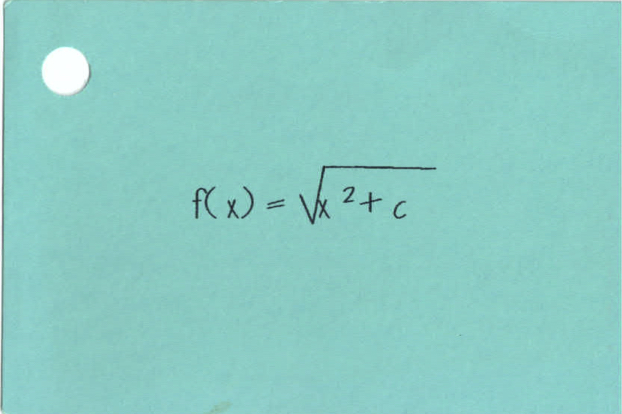 f(x) = √x²+ c